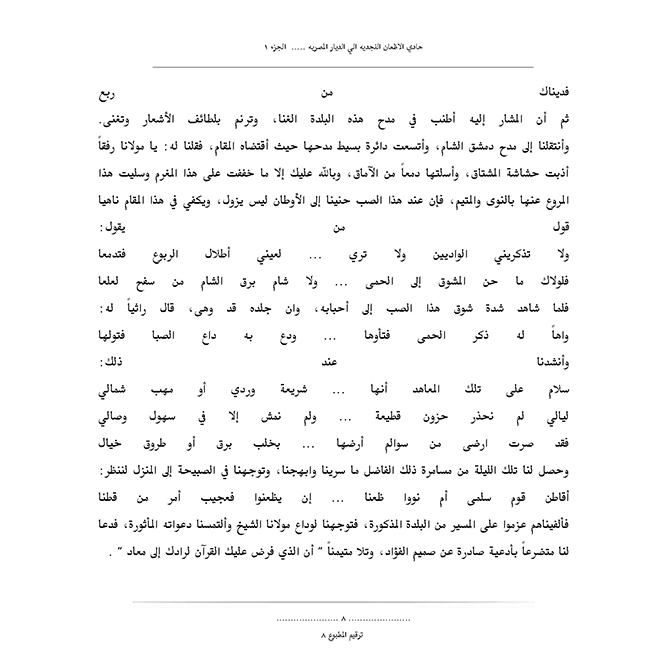 حادي الاظعان النجديه الي الديار المصريه ..... الجزء ١
فديناك من ربع
ثم أن المشار إليه أطنب في مدح هذه البلدة الغنا، وترنم بلطائف الأشعار وتغنى.
وأنتقلنا إلى مدح دمشق الشام، وأتسعت دائرة بسيط مدحها حيث أقتضاه المقام، فقلنا له: يا مولانا رفقاً
أذبت حشاشة المشتاق، وأسلتها دمعاً من الآماق، وبالله عليك إلا ما خففت على هذا المغرم وسليت هذا
المروع عنها بالنوى والمتيم، فإن عند هذا الصب حنينا إلى الأوطان ليس يزول، ويكفي في هذا المقام ناهيا
قول من يقول:
ولا تذكريني الواديين ولا تري ... لعيني أطلال الربوع فتدمعا
فلولاك ما حن المشوق إلى الحمى ... ولا شام برق الشام من سفح لعلعا
فلما شاهد شدة شوق هذا الصب إلى أحبابه، وان جلده قد وهى، قال راثياً له:
واهاً له ذكر الحمى فتأوها ... ودع به داع الصبا فتولها
وأنشدنا عند ذلك:
سلام على تلك المعاهد أنها ... شريعة وردي أو مهب شمالي
ليالي لم نحذر حزون قطيعة ... ولم نمش إلا في سهول وصالي
فقد صرت ارضى من سوالم أرضها ... بخلب برق أو طروق خيال
وحصل لنا تلك الليلة من مسامرة ذلك الفاضل ما سرينا وابهجنا، وتوجهنا في الصبيحة إلى المنزل لننظر:
أقاطن قوم سلمى أم نووا ظعنا ... إن يظعنوا فعجيب أمر من قطنا
فألفيناهم عزموا على المسير من البلدة المذكورة، فتوجهنا لوداع مولانا الشيخ وألتمسنا دعواته المأثورة، فدعا
لنا متضرعاً بأدعية صادرة عن صميم الفؤاد، وتلا متيمناً " أن الذي فرض عليك القرآن لرادك إلى معاد " .
...................... ٨ ......................
ترقيم المطبوع ٨